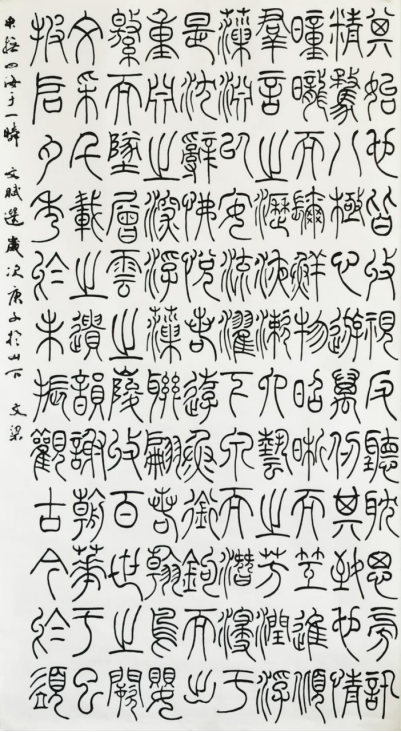 其始也皆收視反聽耽思旁訊
精騖八極心遊萬仞其致也情
曈曨而彌鮮物昭晰而互進傾
群言之瀝液漱六藝之芳潤浮
藻淵以安流濯下泉而潛浸于
是沈辭怫悅若遊魚銜鉤而出
重淵之深浮藻聯翩若翰鳥嬰
繳而墜層雲之峻收百世之闕
文采千載之遺韻謝朝華于已
披啟夕秀於未振觀古今於須
臾撫四海于一瞬 文賦選 歲次庚子於山下 文梁